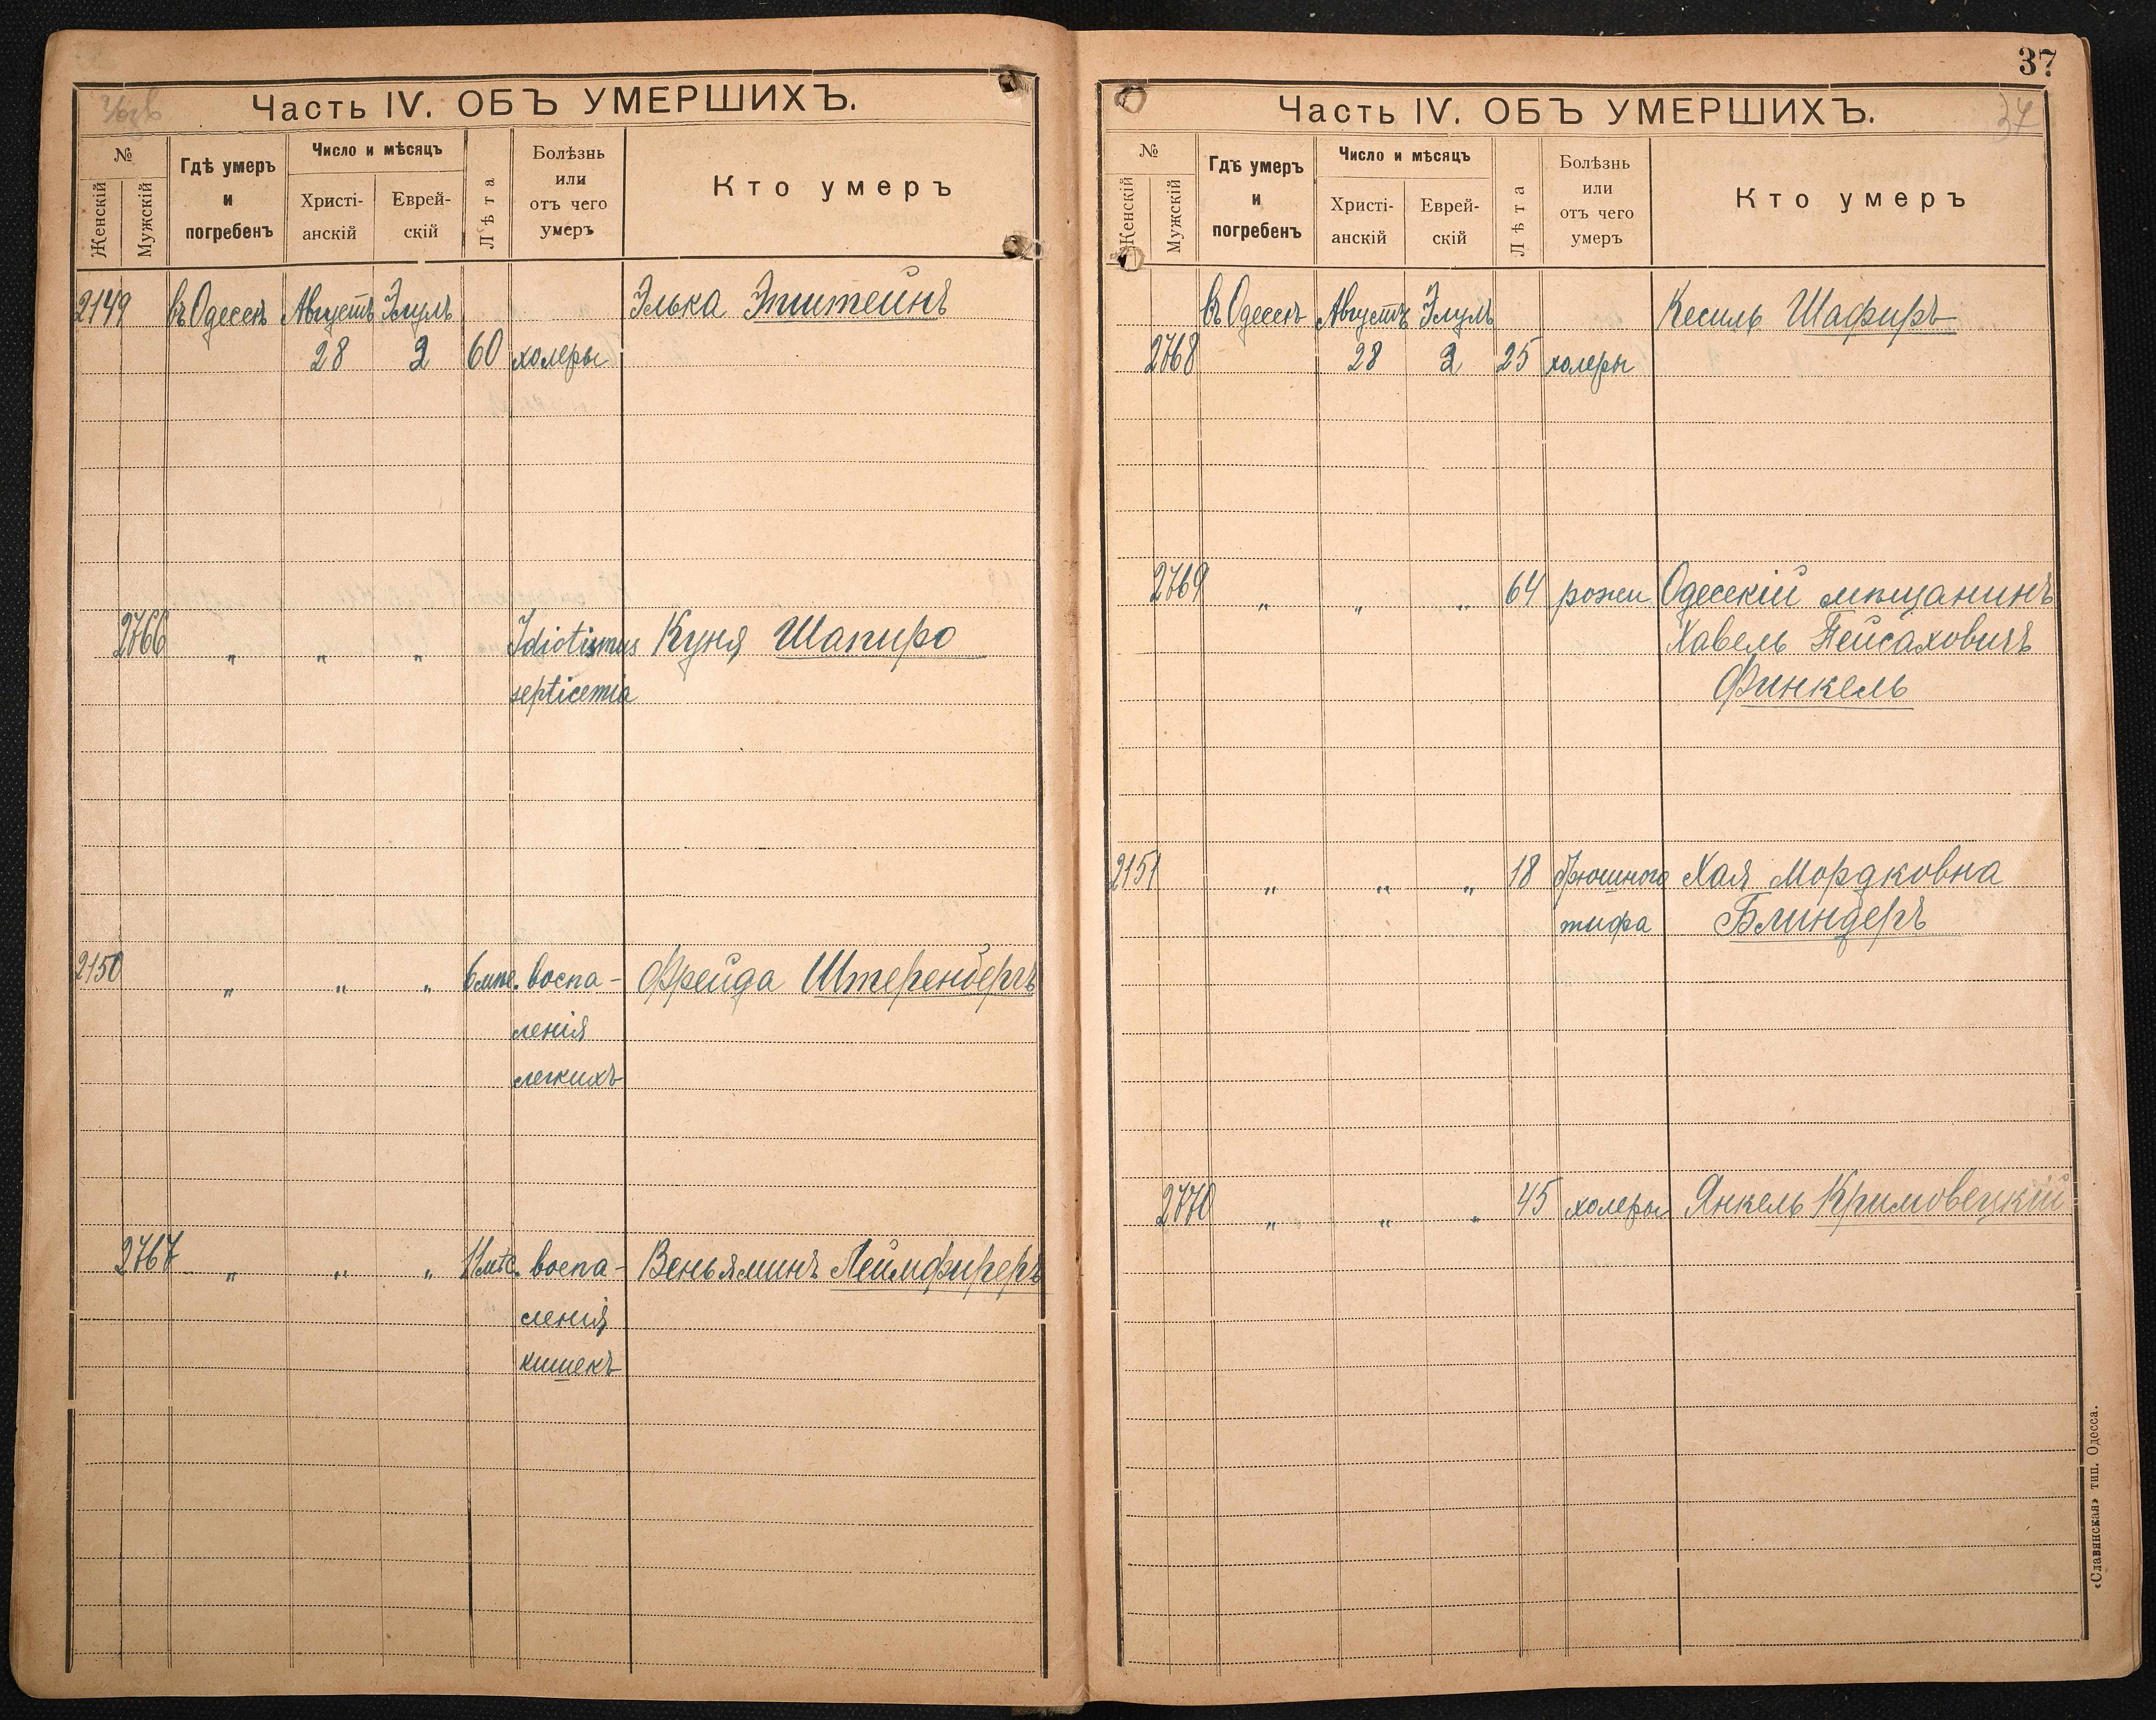 Часть IV. ОБЪ УМЕРШИХЪ.
№
Женскій
Мужскій
Гдѣ умеръ и погребенъ
Число и мѣсяцъ
Христі-анскій
Еврей-скій
Лѣта
Болѣзнь или отъ чего умеръ
Кто умеръ
2149 въ Одессѣ Августъ Элулъ Элька Эпштейнъ
28 2 60 холеры
2766 „ „ „ Idiotismus Куня Шапиро
septicemia
2150 „ „ „ 6 мѣс. воспа- Фрейда Штеренбергъ
ленія
легкихъ
2767 „ „ „ 11 мѣс. воспа- Веньяминъ Леймфиреръ
ленія
кишекъ
37
Часть IV. ОБЪ УМЕРШИХЪ.
37
№
Женскій
Мужскій
Гдѣ умеръ и погребенъ
Число и мѣсяцъ
Христі-анскій
Еврей-скій
Лѣта
Болѣзнь или отъ чего умеръ
Кто умеръ
въ Одессѣ Августъ Элулъ Кесиль Шафиръ
2768 28 2 25 холеры
2769 „ „ „ 64 рожи Одесскій мѣщанинъ
Хавель Пейсаховичъ
Финкель
2151 „ „ „ 18 брюшного Хая Мордковна
тифа Блиндеръ
2770 „ „ „ 45 холеры Янкель Кримовецкій
«Славянская» тип. Одесса.